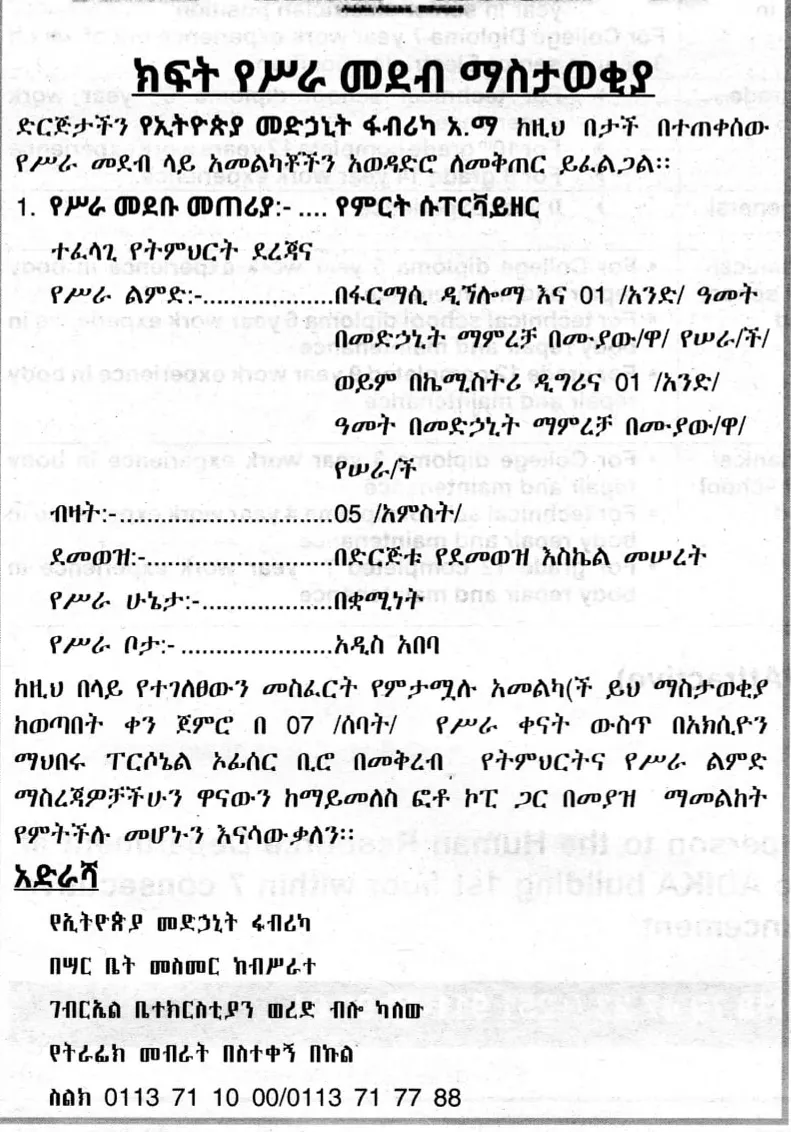 ክፍት የሥራ መደብ ማስታወቂያ
ድርጅታችን የኢትዮጵያ መድኃኒት ፋብሪካ አ.ማ ከዚህ በታች በተጠቀሰው
የሥራ መደብ ላይ አመልካቾችን አወዳድሮ ለመቅጠር ይፈልጋል፡፡
1. የሥራ መደቡ መጠሪያ:- .... የምርት ሱፐርቫይዘር
ተፈላጊ የትምህርት ደረጃና
የሥራ ልምድ:-....................በፋርማሲ ዲኘሎማ እና 01 /አንድ/ ዓመት
በመድኃኒት ማምረቻ በሙያው/ዋ/ የሠራ/ች/
ወይም በኬሚስትሪ ዲግሪና 01 /አንድ/
ዓመት በመድኃኒት ማምረቻ በሙያው/ዋ/
የሠራ/ች
ብዛት:-................................05 /አምስት/
ደመወዝ:-............................በድርጅቱ የደመወዝ እስኬል መሠረት
የሥራ ሁኔታ:-...................በቋሚነት
የሥራ ቦታ:- ......................አዲስ አበባ
ከዚህ በላይ የተገለፀውን መስፈርት የምታሟሉ አመልካ(ች ይህ ማስታወቂያ
ከወጣበት ቀን ጀምሮ በ 07 /ሰባት/ የሥራ ቀናት ውስጥ በአክሲዮን
ማህበሩ ፐርሶኔል ኦፊሰር ቢሮ በመቅረብ የትምህርትና የሥራ ልምድ
ማስረጃዎቻችሁን ዋናውን ከማይመለስ ፎቶ ኮፒ ጋር በመያዝ ማመልከት
የምትችሉ መሆኑን እናሳውቃለን፡፡
አድራሻ
የኢትዮጵያ መድኃኒት ፋብሪካ
በሣር ቤት መስመር ከብሥራተ
ገብርኤል ቤተክርስቲያን ወረድ ብሎ ካለው
የትራፊክ መብራት በስተቀኝ በኩል
ስልክ 0113 71 10 00/0113 71 77 88